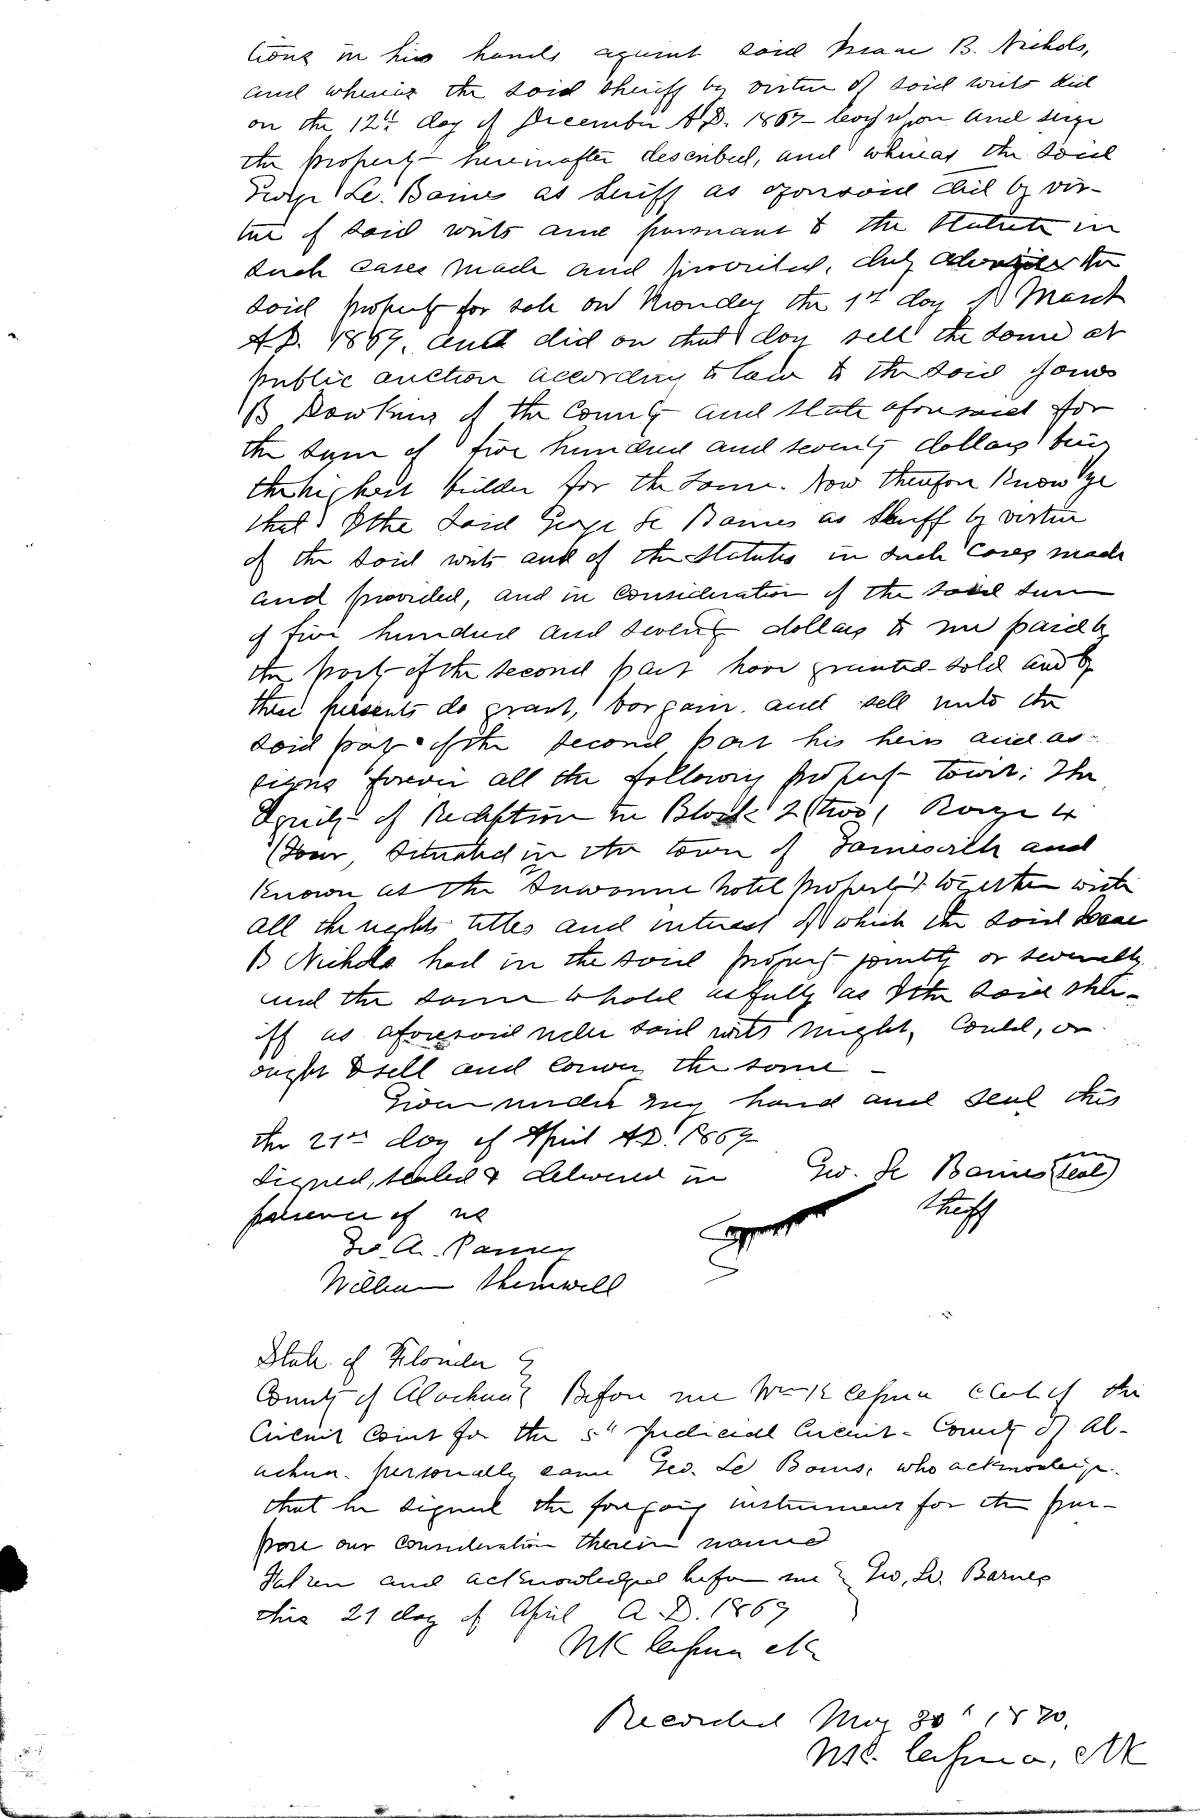 tions in his hands against said Isaac B. Nichols,
and whereas the said Sheriff by virtue of said writs did
on the 12th day of December A.D. 1867 levy upon and seize
the property hereinafter described, and whereas the said
George Le. Barnes as Sheriff as aforesaid did by vir-
tue of said writs and pursuant to the Statute in
such cases made and provided, duly advertise the
said property for sale on Monday the 1st day of March
A.D. 1869, and did on that day sell the same at
public auction according to law to the said James
B Dawkins of the County and State aforesaid for
the sum of five hundred and seventy dollars being
the highest bidder for the same. Now therefore Know ye
that I the said George Le Barnes as Sheriff by virtue
of the said writs and of the Statutes in such cases made
and provided, and in consideration of the said sum
of five hundred and seventy dollars to me paid by
the party of the second part have granted sold and by
these presents do grant, bargain and sell unto the
said party of the second part his heirs and as-
signs forever all the following property towit: The
Equity of Redemption in Block 2 (two) Range 4
(Four, situated in the town of Gainesville and
Known as the "Suwannee hotel property" together with
all the rights titles and interest of which the said Isaac
B Nichols had in the said property jointly or severally
and the same to hold as fully as I the said Sher-
iff as aforesaid under said writs might, could, or
ought to sell and convey the same –
Given under my hand and seal this
the 21st day of April A.D. 1869
Signed, sealed & delivered in Geo. Le Barnes (seal)
presence of us Sheriff
Geo. A. Ramsey
William Shemwell
State of Florida
County of Alachua Before me Wm K Cessna Clerk of the
Circuit Court for the 5th Judicial Circuit - County of Al-
achua. personally came Geo. Le Barnes, who acknowledge.
that he signed the foregoing instrument for the pur-
pose our consideration therein named
Taken and acknowledged before me Geo. Le. Barnes
this 21 day of April A.D. 1869
WK Cessna clk
Recorded May 30th 1870.
WK. Cessna, clk